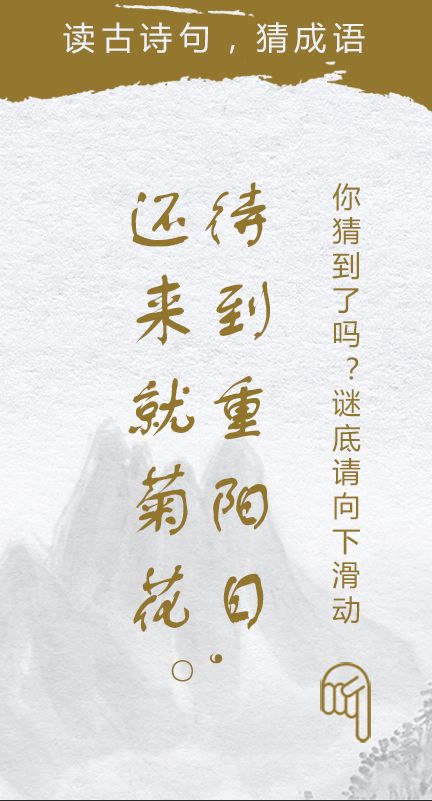 读古诗句，猜成语
你猜到了吗？谜底请向下滑动
待到重阳日，
还来就菊花。